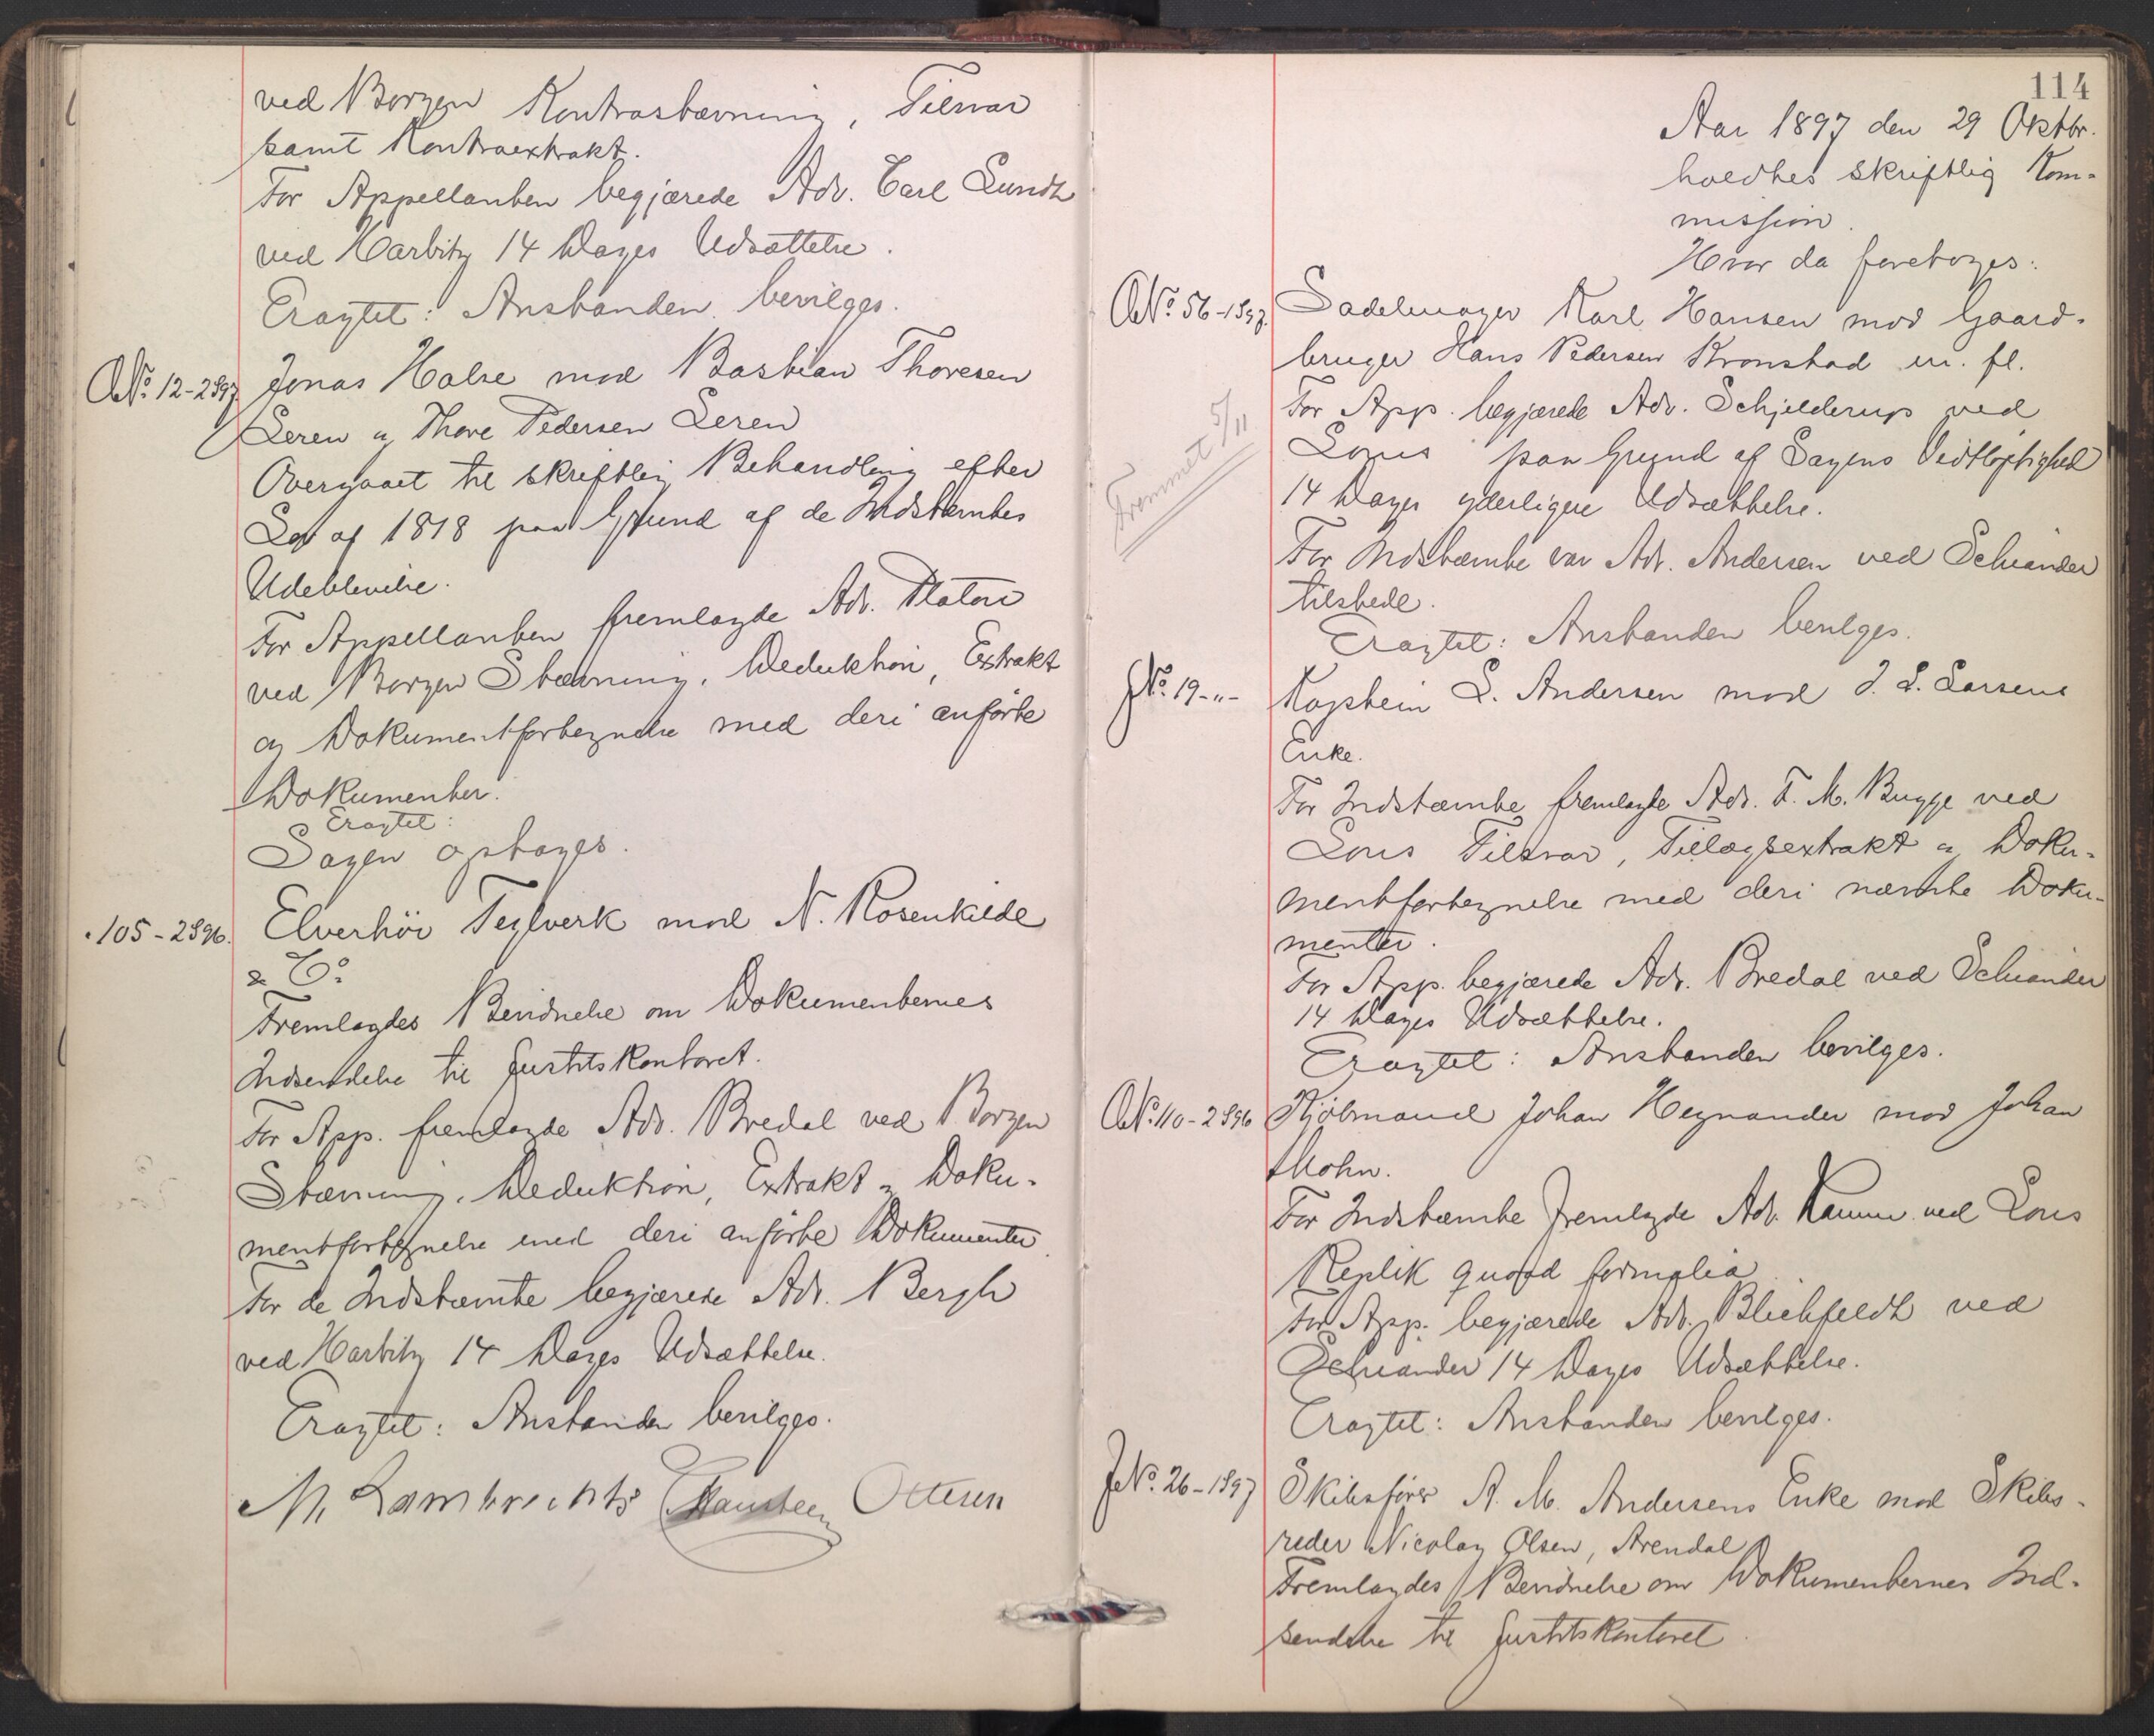 ved Borgen Kontrastævning, Tilsvar
samt Kontraextrakt.
For Appellanten begjærede Adv. Carl Lundh
ved Harbitz 14 Dages Udsættelse.
Eragtet: Anstanden bevilges.
No. 12-2 897. Jonas Halse mod Bastian Thoresen
Leren og Thore Pedersen Leren
Overgaaet til skriftlig Behandling efter
Lov af 1818 paa Grund af de Indstævntes
Udeblivelse.
For Appellanten fremlagde Adv. Platou
ved Borgen Stævning, Deduktion, Extrakt
og Dokumentfortegnelse med deri anførte
Dokumenter.
Eragtet:
Sagen optages.
105-2 896. Elverhöi Teglverk mod N. Rosenkilde
& Co.
Fremlagdes Bevidnelse om Dokumenternes
Indsendelse til Justitskontoret.
For App. fremlagde Adv. Bredal ved Borgen
Stævning, Deduktion, Extrakt og Doku-
mentfortegnelse med deri anførte Dokumenter.
For de Indstævnte begjærede Adv. Bergh
ved Harbitz 14 Dages Udsættelse.
Eragtet: Anstanden bevilges.
M. Lambrechts Hansteen Ottesen
114
Aar 1897 den 29 Oktbr.
holdtes skriftlig Kom-
mission.
Hvor da foretoges:
No. 56-1897. Sadelmager Karl Hansen mod Gaard-
bruger Hans Pedersen Kronstad m. fl.
For App. begjærede Adv. Schjelderup ved
Lous paa Grund af Sagens Vidtløftighed
14 Dages yderligere Udsættelse.
Fremmet 5/11
For Indstævnte var Adv. Andersen ved Schiander
tilstede.
Eragtet: Anstanden bevilges.
No. 19-"- Kaptein L. Andersen mod J. L. Larsens
Enke.
For Indstævnte fremlagde Adv. F. M. Bugge ved
Lous Tilsvar, Tillægsextrakt og Doku-
mentfortegnelse med deri nævnte Doku-
menter.
For App. begjærede Adv. Bredal ved Schiander
14 Dages Udsættelse.
Eragtet: Anstanden bevilges.
No. 110-2 896 Kjøbmand Johan Hegnander mod Johan
Mohn.
For Indstævnte fremlagde Adv. ved Lous
Replik quoad formalia
For App. begjærede Adv. Blichfeldt ved
Schiander 14 Dages Udsættelse.
Eragtet: Anstanden bevilges.
No. 26-1897 Skibsfører A. M. Andersens Enke mod Skibs-
reder Nicolay Olsen, Arendal
Fremlagdes Bevidnelse om Dokumenternes Ind-
sendelse til Justitskontoret.